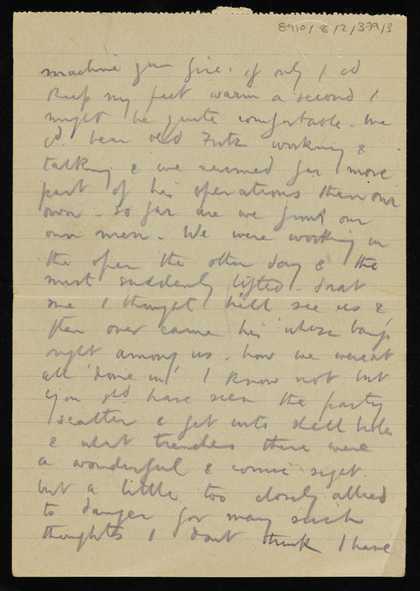 8910/8/2/379/3
machine gun fire. if only I cd
keep my feet warm a second I
might be quite comfortable. We
cd. hear old Fritz working &
talking & we seemed far more
part of his operations than our
own. So far are we from our
own men. We were working in
the open the other day & the
mist suddenly lifted. Drat
me I thought he'll see us &
then over came his 'whizz bangs'
right among us. how we weren't
all 'done in' I know not but
you shd have seen the party
scatter & get into shell holes
& what trenches there were
a wonderful & comic sight.
but a little too closely allied
to danger for many such
thoughts I don't think I have